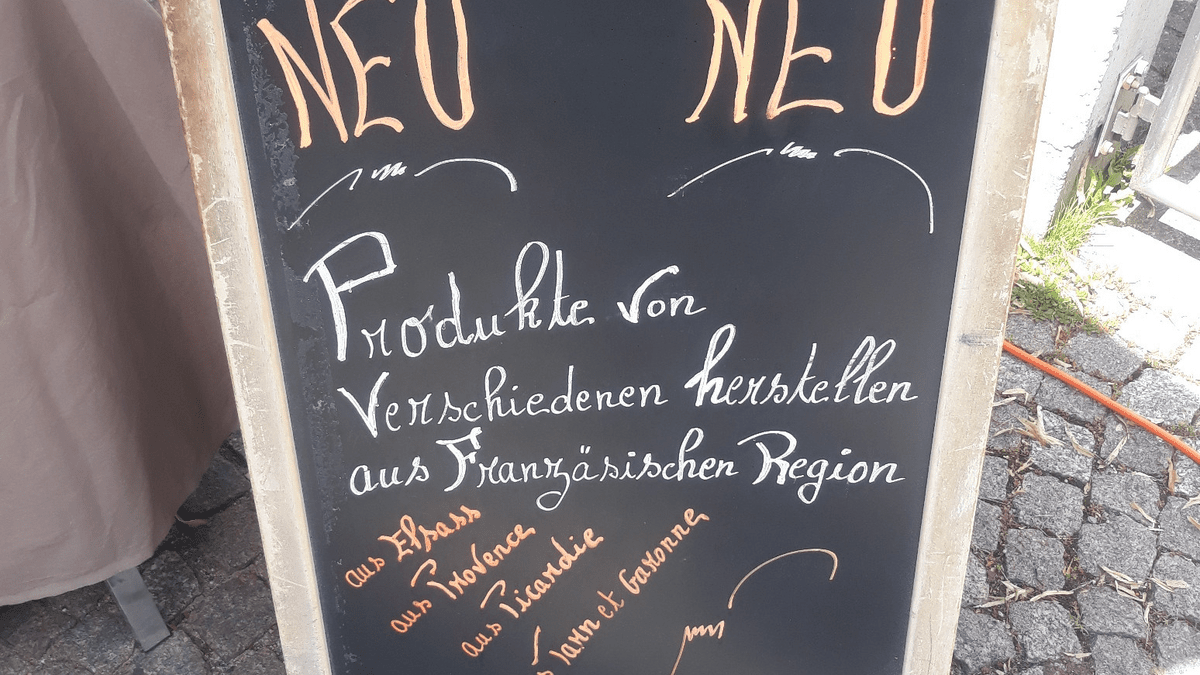 NEU NEU
Produkte von
Verschiedenen herstellen
aus Französischen Region
aus Elsass
aus Provence
aus Picardie
Tarn et Garonne